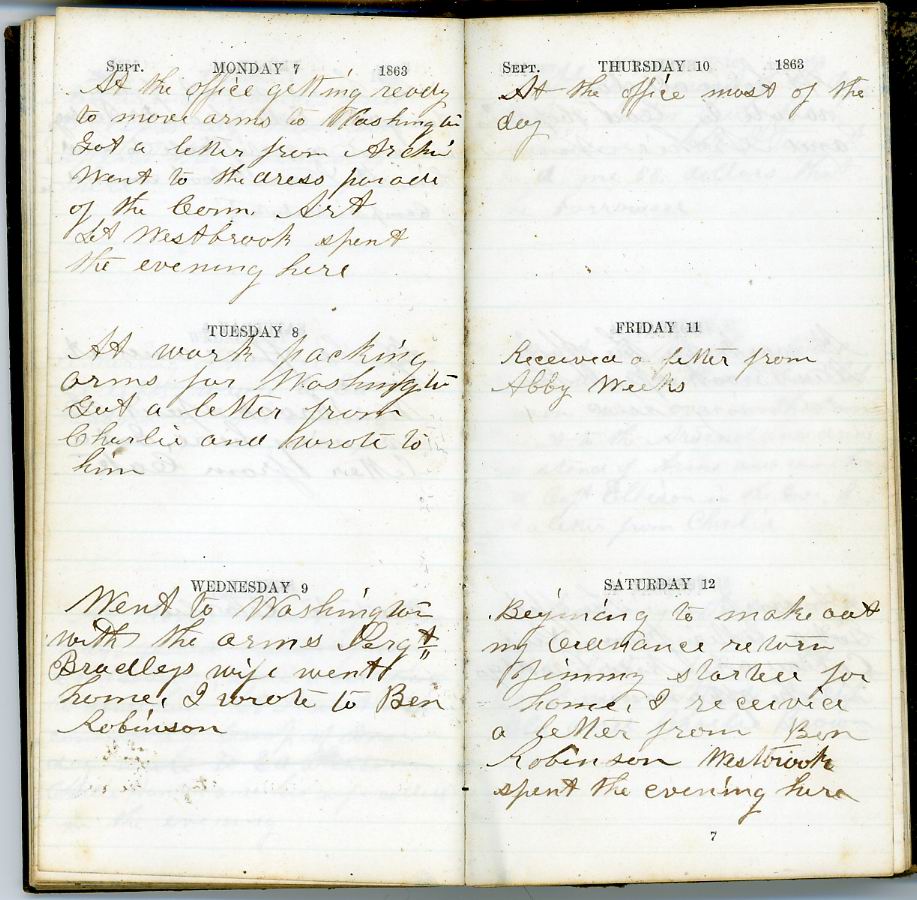 SEPT. MONDAY 7 1863
At the office getting ready
to move arms to Washington
Got a letter from Archie
Went to the dress parade
of the Conn. Art
Lt Westbrook spent
the evening here
TUESDAY 8
At work packing
arms for Washington
Got a letter from
Charlie and wrote to
him
WEDNESDAY 9
Went to Washington
with the arms Sergt
Bradleys wife went
home, I wrote to Ben
Robinson
SEPT. THURSDAY 10 1863
At the office most of the
day
FRIDAY 11
Received a letter from
Abby Weeks
SATURDAY 12
Begining to make out
my Ordnance return
Jimmy started for
home, I received
a letter from Ben
Robinson Westbrook
spent the evening here
7